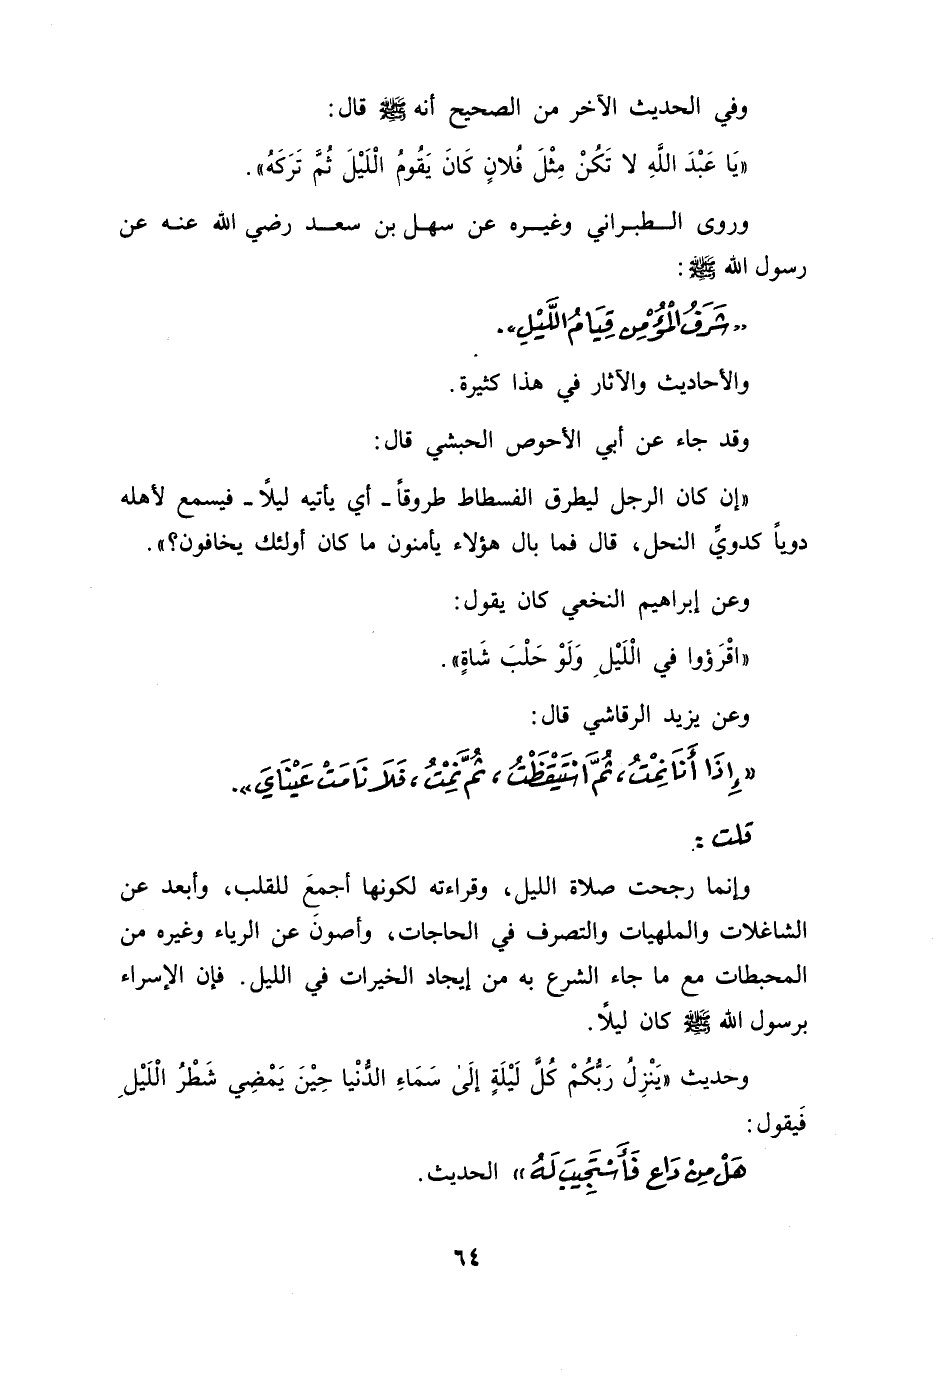 وفي الحديث الآخر من الصحيح أنه ﷺ قال:
«يَا عَبْدَ اللَّهِ لا تَكُنْ مِثْلَ فُلانٍ كَانَ يَقُومُ الْلَيْلَ ثُمَّ تَرَكَهُ».
وروى الطبراني وغيره عن سهل بن سعد رضي الله عنه عن
رسول الله ﷺ:
«شَرَفُ الْمُؤْمِنِ قِيَامُ اللَّيْلِ».
والأحاديث والآثار في هذا كثيرة.
وقد جاء عن أبي الأحوص الحبشي قال:
«إن كان الرجل ليطرق الفسطاط طروقاً ـ أي يأتيه ليلًا ـ فيسمع لأهله
دوياً كدويِّ النحل، قال فما بال هؤلاء يأمنون ما كان أولئك يخافون؟».
وعن إبراهيم النخعي كان يقول:
«اقْرَؤوا في الْلَيْلِ وَلَوْ حَلْبَ شَاةٍ».
وعن يزيد الرقاشي قال:
«إِذَا أَنَا نِمْتُ، ثُمَّ اسْتَيْقَظْتُ، ثُمَّ نِمْتُ، فَلَا نَامَتْ عَيْنَايَ».
قلت:
وإنما رجحت صلاة الليل، وقراءته لكونها أجمعَ للقلب، وأبعد عن
الشاغلات والملهيات والتصرف في الحاجات، وأصونَ عن الرياء وغيره من
المحبطات مع ما جاء الشرع به من إيجاد الخيرات في الليل. فإن الإسراء
برسول الله ﷺ كان ليلًا.
وحديث «يَنْزِلُ رَبُّكُمْ كُلَّ لَيْلَةٍ إلَىٰ سَمَاءِ الدُّنْيا حِيْنَ يَمْضِي شَطْرُ الْلَيْلِ
فَيقول:
هَلْ مِنْ دَاعٍ فَأَسْتَجِيبَ لَهُ» الحديث.
٦٤